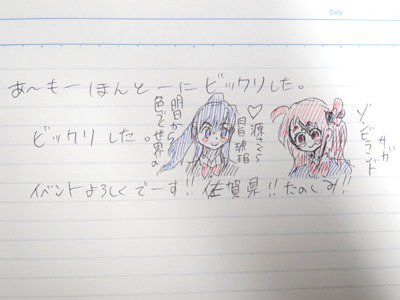 Date
あ〜もーほんとーにビックリした。
ビックリした。
明日から
色づく世界の
♡源さくら
月白瑚珀
ゾンビランド
サガ
イベントよろしくでーす!!佐賀県!!たのしみ!